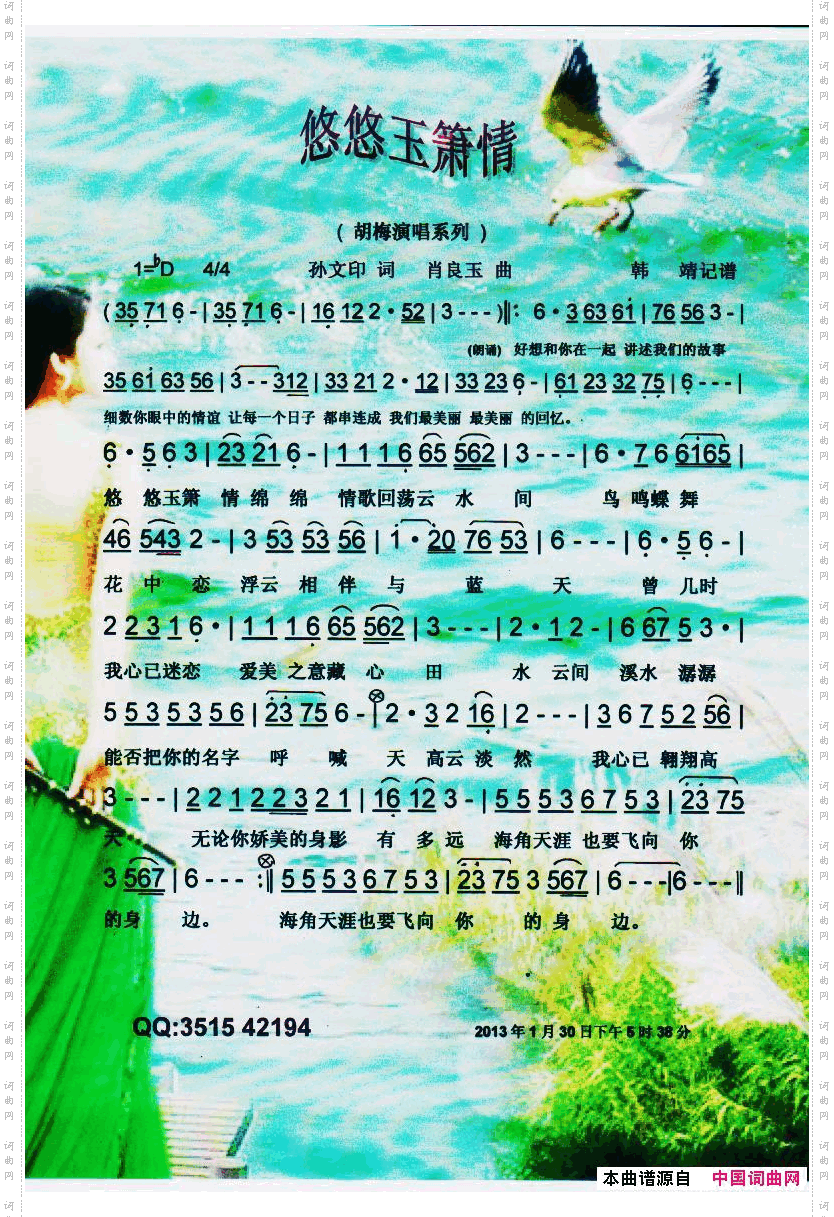 悠悠玉箫情
( 胡梅演唱系列 )
1=bD 4/4 孙文印 词 肖良玉 曲 韩 靖记谱
( 35 71 6 - | 35 71 6 - | 16 12 2 · 52 | 3 - - - )‖: 6 · 3 63 61 | 76 56 3 - |
(朗诵) 好想和你在一起 讲述我们的故事
35 61 63 56 | 3 - - 312 | 33 21 2 · 12 | 33 23 6 - | 61 23 32 75 | 6 - - - |
细数你眼中的情谊 让每一个日子 都串连成 我们最美丽 最美丽 的回忆。
6 · 5 6 3 | 23 21 6 - | 1 1 1 6 65 562 | 3 - - - | 6 · 7 6 6165 |
悠 悠玉箫 情 绵 绵 情歌回荡云 水 间 鸟 鸣蝶 舞
46 543 2 - | 3 53 53 56 | 1 · 20 76 53 | 6 - - - | 6 · 5 6 - |
花 中 恋 浮云 相 伴 与 蓝 天 曾 几时
2 2 3 1 6 · | 1 1 1 6 65 562 | 3 - - - | 2 · 1 2 - | 6 67 5 3 · |
我心已迷恋 爱美 之意藏 心 田 水 云间 溪水 潺潺
5 5 3 5 3 5 6 | 23 75 6 - | 2 · 3 2 16 | 2 - - - | 3 6 7 5 2 56 |
能否把你的名字 呼 喊 天 高云 淡 然 我心已 翱翔高
3 - - - | 2 2 1 2 2 3 2 1 | 16 12 3 - | 5 5 5 3 6 7 5 3 | 23 75
天 无论你娇美的身影 有 多 远 海角天涯 也要飞向 你
3 567 | 6 - - - :‖ 5 5 5 3 6 7 5 3 | 23 75 3 567 | 6 - - - | 6 - - - ‖
的身 边。 海角天涯也要飞向 你 的 身 边。
QQ:3515 42194
2013年1月30日下午5时38分
本曲谱源自 中国词曲网
词曲网